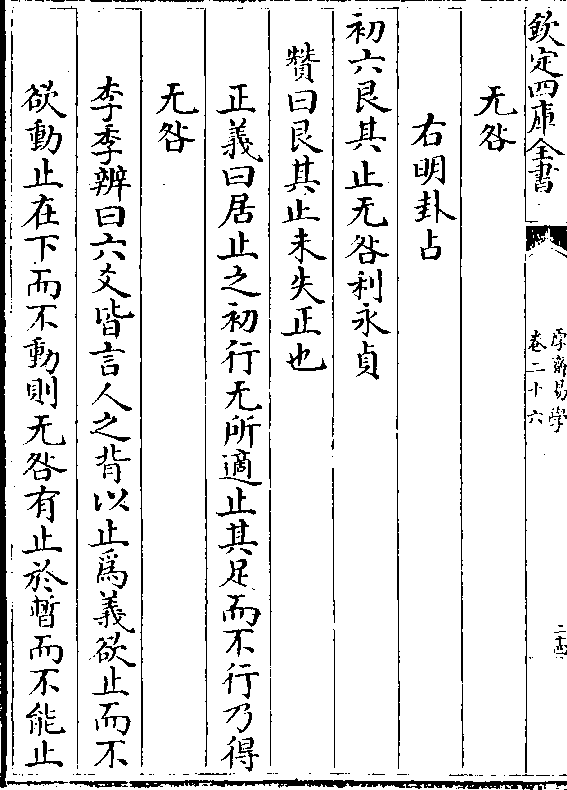 欽定四庫全書
厚齋易學
卷二十六
二十四
无咎
右明卦占
初六艮其止无咎利永貞
贊曰艮其止未失正也
正義曰居止之初行无所適止其足而不行乃得
无咎
李季辨曰六爻皆言人之背以止爲義欲止而不
欲動止在下而不動則无咎有止於暫而不能止